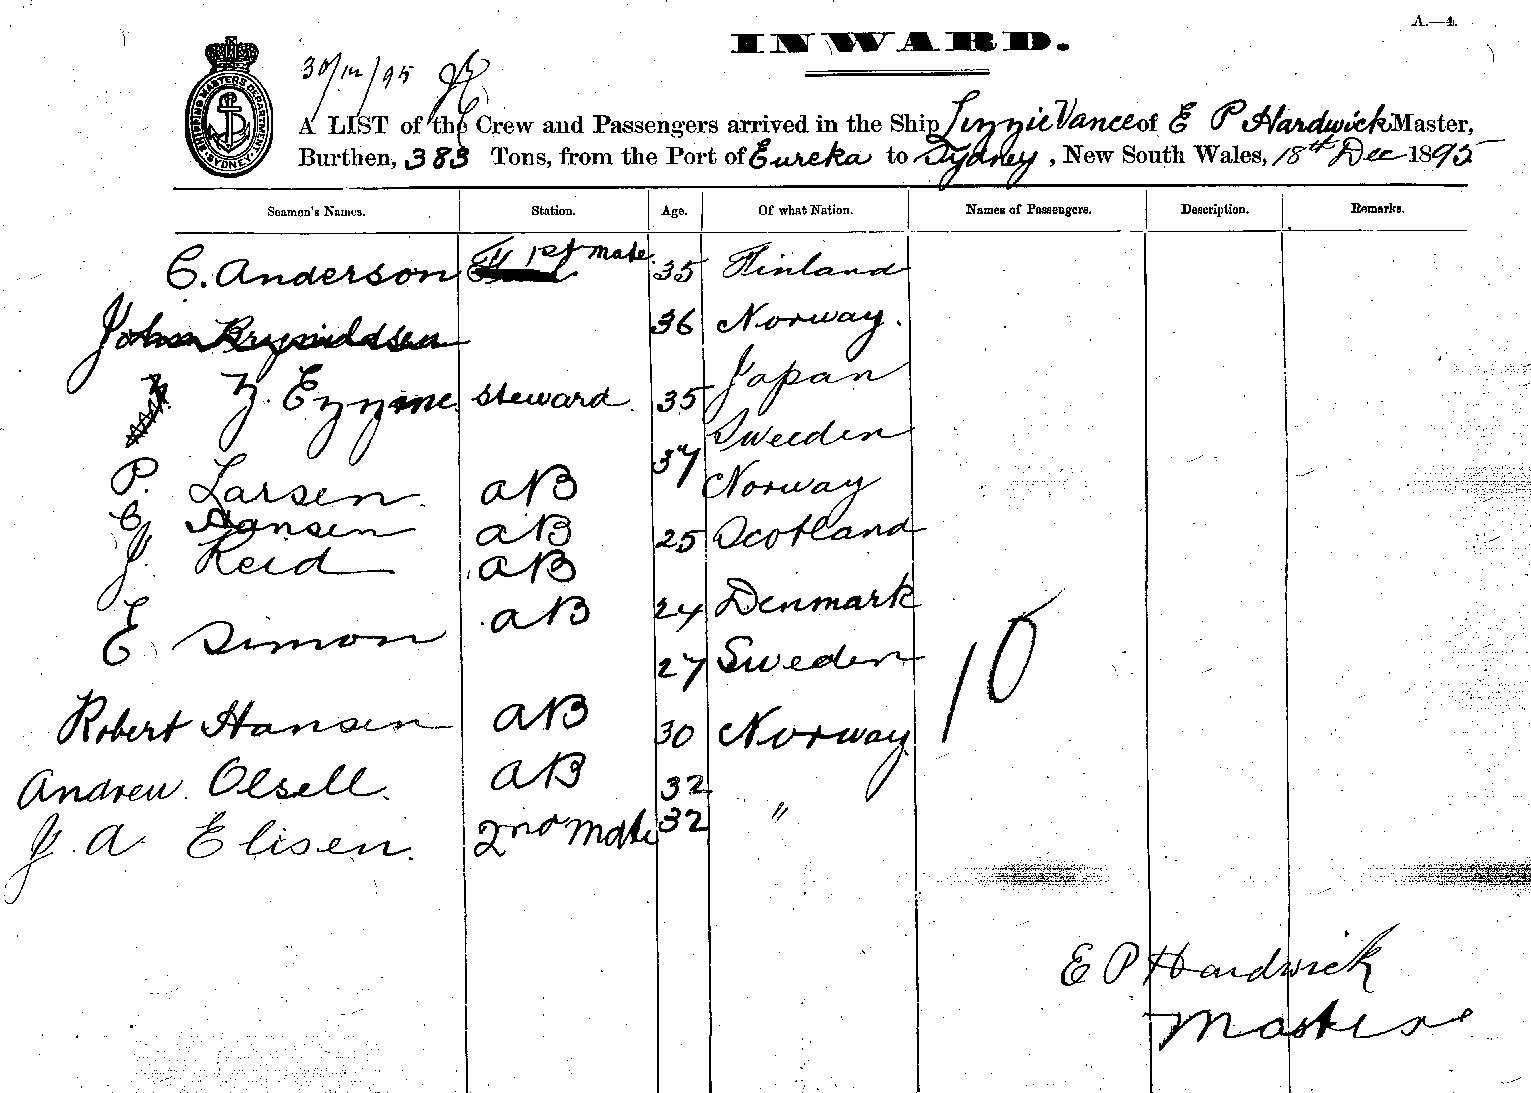 A.—4.
INWARD.
30/12/95
A LIST of the Crew and Passengers arrived in the Ship Lizzie Vance of E P Hardwick Master,
Burthen, 383 Tons, from the Port of Eureka to Sydney, New South Wales, 18th Dec 1895
SHIPPING MASTER'S DEPARTMENT SYDNEY
Seamen's Names. Station. Age. Of what Nation. Names of Passengers. Description. Remarks.
C. Anderson 1st mate 35 Finland
John 36 Norway.
Steward 35 Japan
37 Sweeden
P. Larsen. aB Norway
C Hansen aB 25 Scotland
J. Reid aB
E Simon aB 24 Denmark
27 Sweden
Robert Hansen aB 30 Norway
Andrew Olsell. aB 32
J. A Elisen. 2nd Mate 32 "
10
E P Hardwick
Master